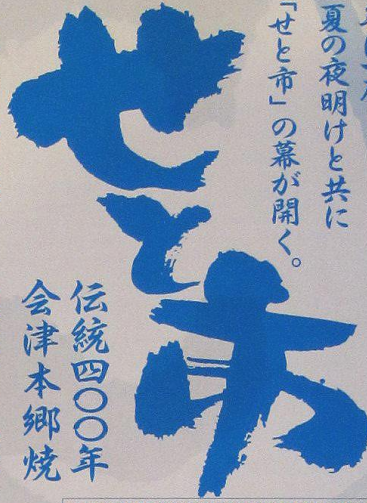 夏の夜明けと共に
「せと市」の幕が開く。
せと市
伝統四〇〇年
会津本郷焼